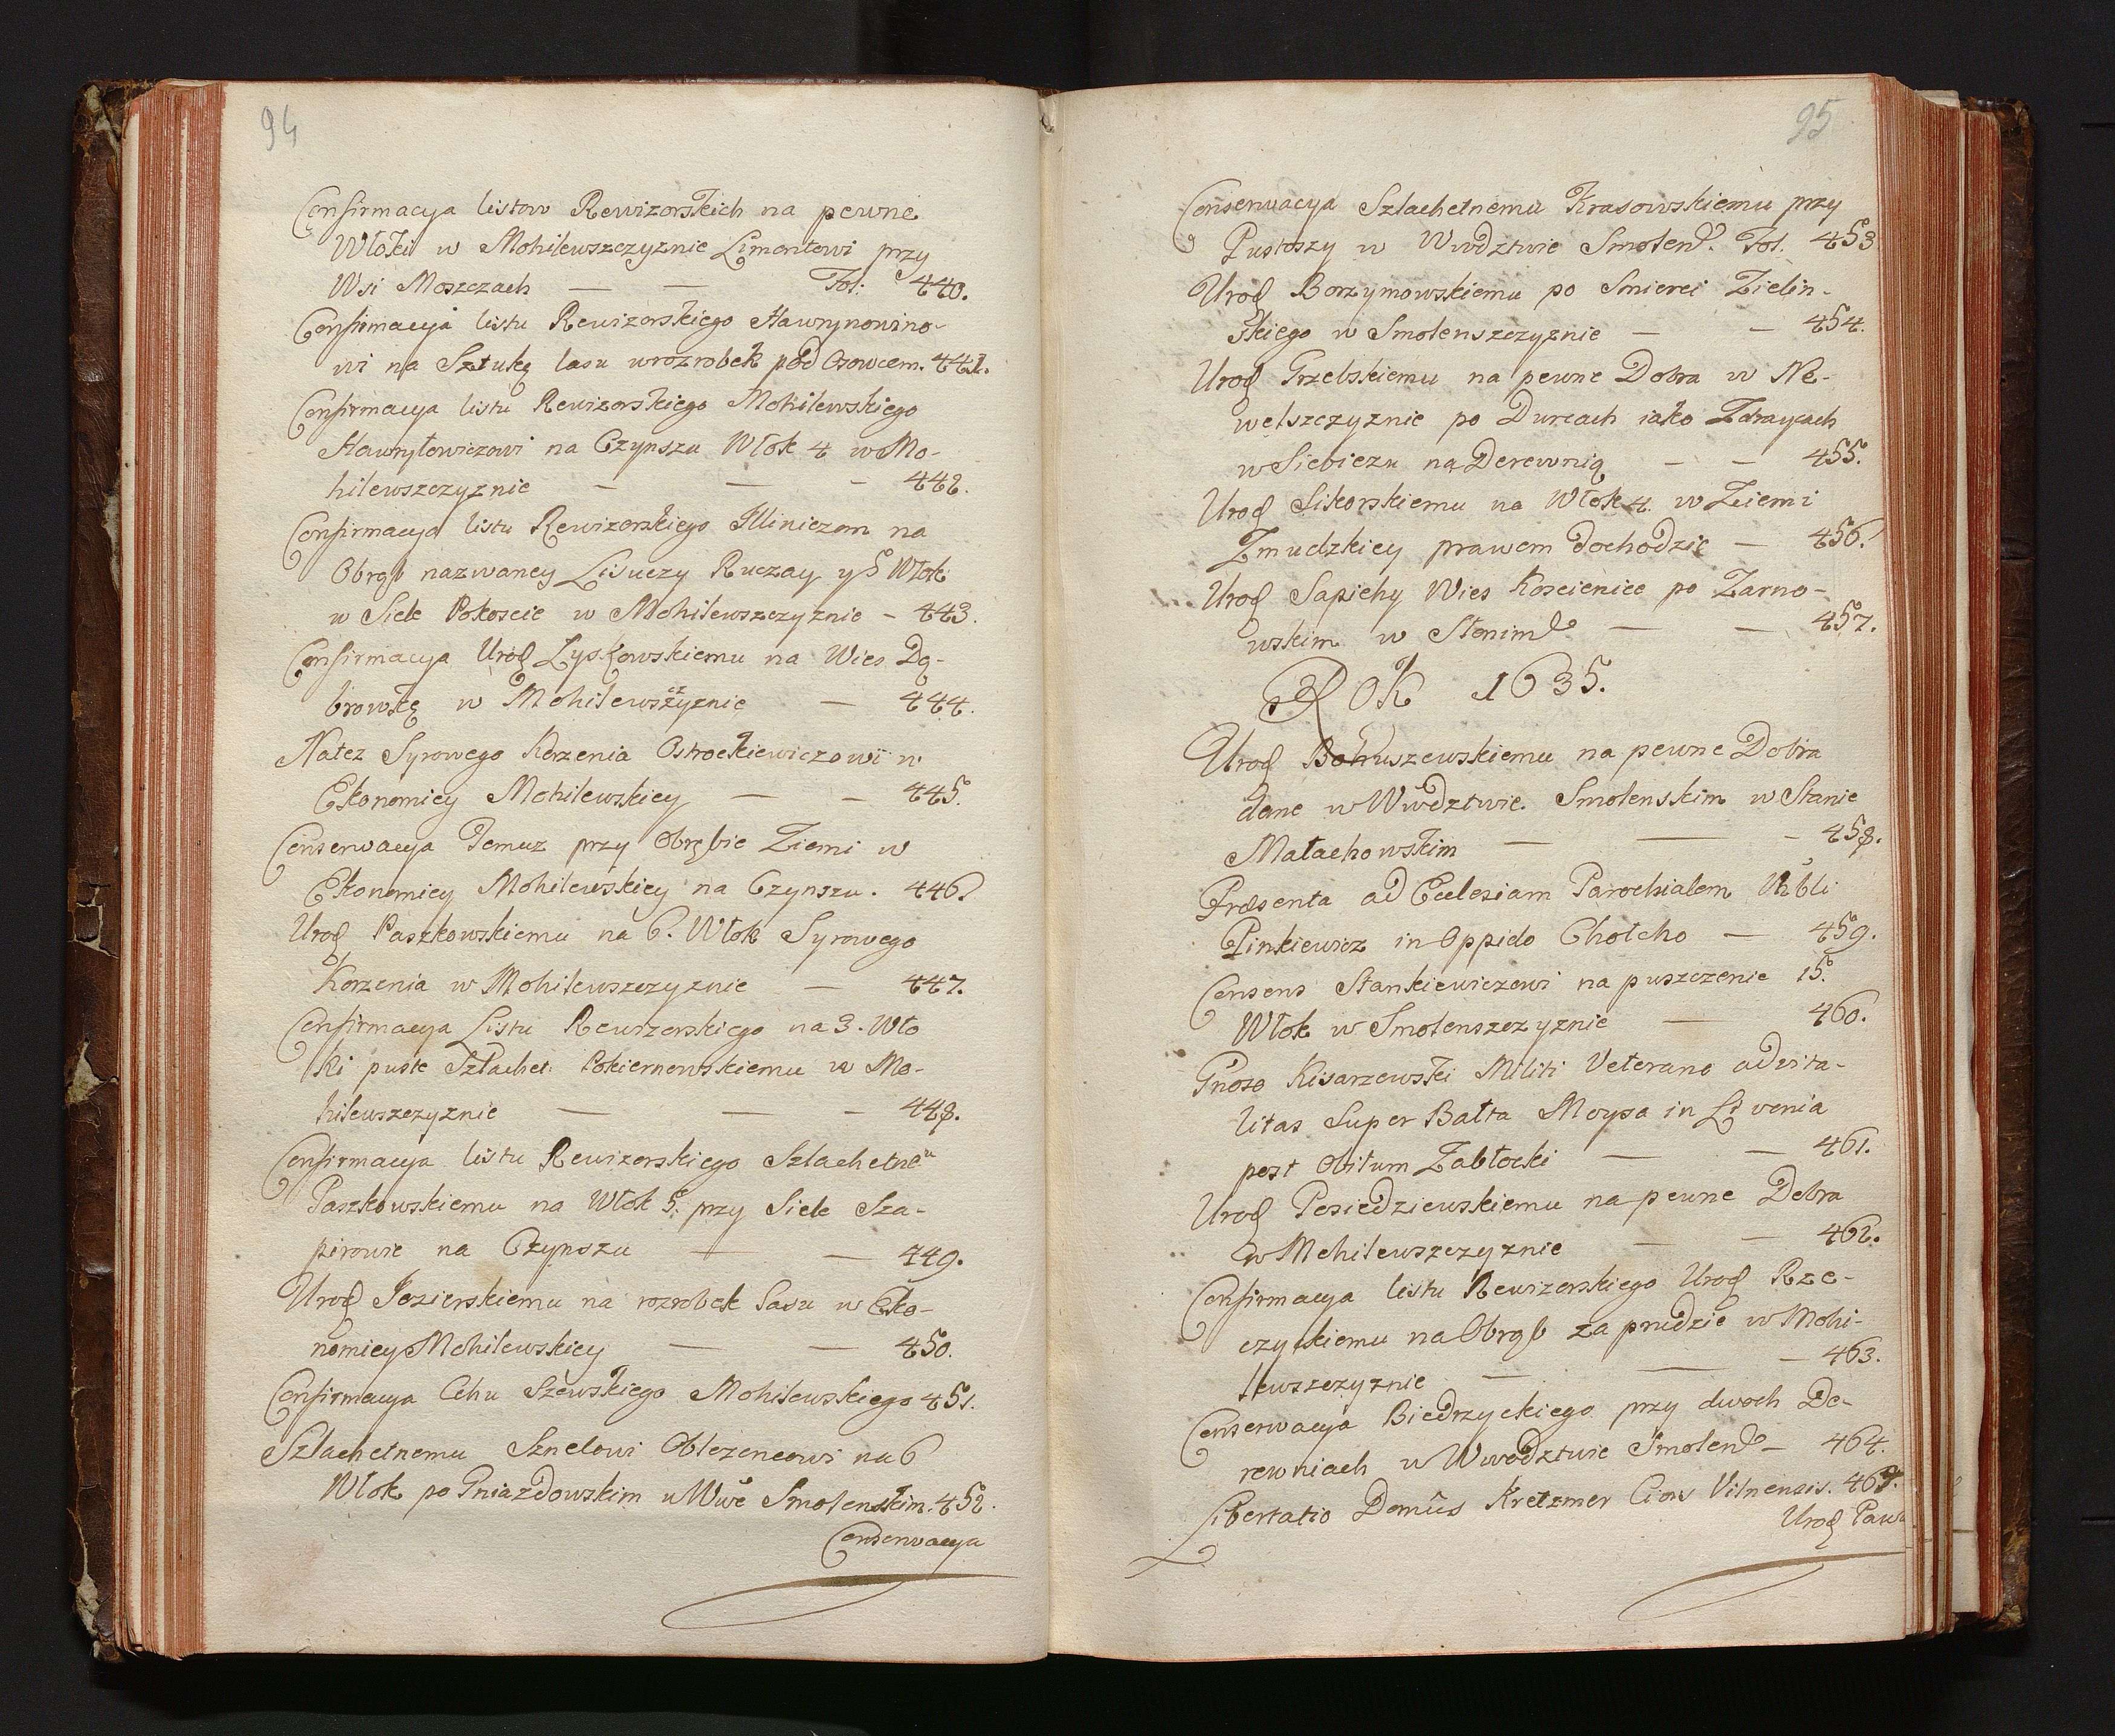 94
Confirmacya listow Rewizorskich na pewne
Włoki w Mohilewszczyznie Limontowi przy
Wsi Moszczach — — Fol. 440.
Confirmacya listu Rewizorskiego Hawrynowino-
wi na Sztukę lasu wrozrobek pod Osowcem. 441.
Confirmacya listu Rewizorskiego Mohilewskiego
Hawryłowiczowi na Czynszu Włok 4 w Mo-
hilewszczyznie — — — 442.
Confirmacya listu Rewizorskiego Illiniczom na
Obrąb nazwaney Lisuczy Ruczay y 5 Włok
w Siele Pokoscie w Mohilewszczyznie – 443.
Confirmacya Urod Zyskowskiemu na Wies Dą-
browkę w Mohilewszczyznie — 444.
Natez Syrowego Korzenia Ostrockiewiczowi w
Ekonomiey Mohilewskiey — — 445.
Conserwacya Temuz przy Obrębie Ziemi w
Ekonomiey Mohilewskiey na Czynszu. 446.
Urod Paszkowskiemu na 6. Włok Syrowego
Korzenia w Mohilewszczyznie — 447.
Confirmacya Listu Rewizorskiego na 3. Wło
ki puste Szlachet: Pokiernowskiemu w Mo-
hilewszczyznie — — — 448.
Confirmacya listu Rewizorskiego Szlachetneu
Paszkowskiemu na Włok 5. przy Siele Sza-
pirowie na Czynszu — — 449.
Urod Jezierskiemu na rozrobek Lasu w Eko-
nomiey Mohilewskiey — — 450.
Confirmacya Cehu Szewskiego Mohilewskiego 451.
Szlachetnemu Sznelowi Oblezencowi na 6
Włok po Gniazdowskim w Wwe Smolenskim. 452.
Conserwacya
95
Conserwacya Szlachetnemu Krasowskiemu przy
Pustoszy w Wwdztwie Smolen. Fol. 453
Urod Borzymowskiemu po Smierci Zielin-
skiego w Smolenszczyznie — — 454.
Urod Grzebskiemu na pewne Dobra w Ne-
welszczyznie po Durcach iako Zdraycach
w Siebiezu na Derewnią — — 455.
Urod Sikorskiemu na Włok 4. w Ziemi
Zmudzkiey prawem dochodzic — 456.
Urod Sapiehy Wies Koscienice po Zarno-
wskim w Słonim — — 457.
ROK 1635.
Urod Bohuszewskiemu na pewne Dobra
dane w Wwdztwie Smolenskim w Stanie
Małachowskim — — – 458.
Præsenta ad Ecclesiam Parochialem Vrbli
Pinkiewicz in Oppido Chołcho — 459.
Consens Stankiewiczowi na puszczenie 15.
Włok w Smolenszczyznie — 460.
Gnoso Kisarzewski Militi Veterano advita-
litas Super Bałta Moyza in Livonia
post Obitum Zabłocki — — 461.
Urod Posiedziewskiemu na pewne Dobra
w Mohilewszczyznie — — 462.
Confirmacya listu Rewizorskiego Urod Rze-
czyckiemu na Obrąb za prudzie w Mohi-
lewszczyznie — — — 463.
Conserwacya Biedrzyckiego przy dwoch De-
rewniach w Wwodztwie Smolen – 464.
Libertatio Domûs Kretzmer Civis Vilnensis. 465.
Urod Paw